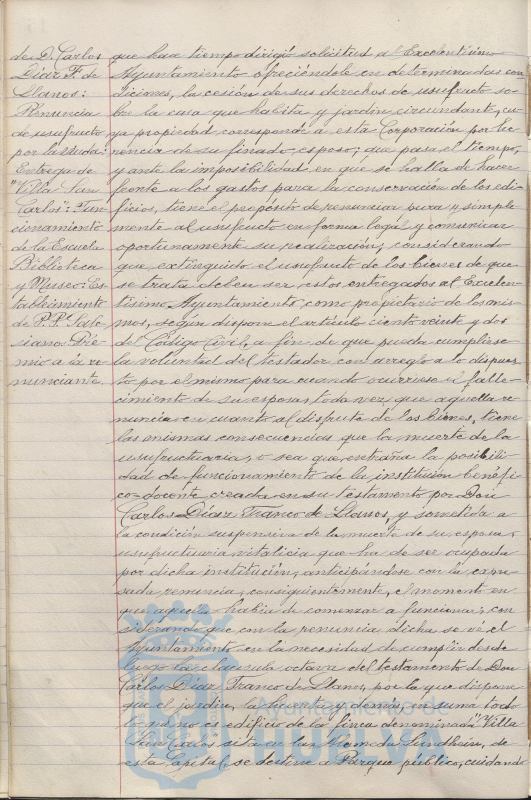 de D. Carlos
Díaz F. de
Llanos:
Renuncia
de usufructo
por la viuda:
Entrega de
"Villa San
Carlos": Fun-
cionamiento
de la Escuela
Biblioteca
y Museo: Es-
tablecimiento
de P.P. Sale-
sianos: Pre-
mio a la re-
nunciante.
que haa tiempo dirigió solicitud al Excelentísimo
Ayuntamiento ofreciéndole en determinadas con
diciones, la cesión de sus derechos de usufructo so-
bre la casa que habita y jardín circundante, cu-
ya propiedad corresponde a esta Corporación por he-
rencia de su finado esposo; que pasa el tiempo,
y ante la imposibilidad en que se halla de hacer
frente a los gastos para la conservación de los edi-
ficios, tiene el propósito de renunciar pura y simple
mente al usufructo en forma legal y comunicar
oportunamente su realización; considerando
que extinguido el usufructo de los bienes de que
se trata deben ser estos entregados al Excelen-
tísimo Ayuntamiento, como propietario de los mis-
mos, según dispone el artículo ciento veinte y dos
del Código Civil, a fin de que pueda cumplirse
la voluntad del testador con arreglo a lo dispues
to por el mismo para cuando ocurriese el falle-
cimiento de su esposa, toda vez que aquella re-
nuncia en cuanto al disfrute de los bienes, tiene
las mismas consecuencias que la muerte de la
usufructuaria, o sea que entraña la posibili-
dad de funcionamiento de la institución benéfi-
co-docente creada en su testamento por Don
Carlos Díaz Franco de Llanos, y sometida a
la condición suspensiva de la muerte de su esposa,
usufructuaria vitalicia que ha de ser ocupada
por dicha institución, anticipándose con la expre-
sada renuncia, consiguientemente, el momento en
que aquella había de comenzar a funcionar; con
siderando que con la renuncia dicha se vé el
Ayuntamiento en la necesidad de cumplir desde
luego la cláusula octava del testamento de Don
Carlos Díaz Franco de Llanos, por la que dispone
que el jardín, la huerta y demás, en suma todo
lo que no es edificio de la finca denominada "Villa
San Carlos" sita en la Alameda Sundheim, de
esta Capital, se destine a Parque público, cuidando
Ayuntamiento de
HUELVA